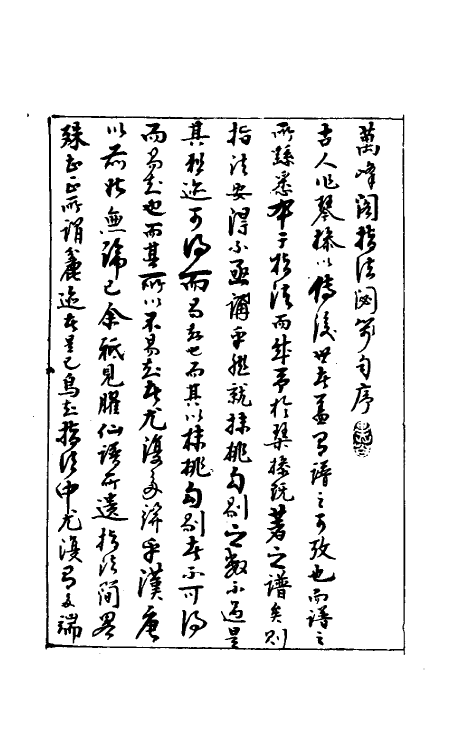 萬峰閣指法閟箋自序
古人作琴操以傳後世者蓋有譜之可攷也而譜之
所繇悉本于指法而於琹操既著之譜矣則
指法安得不亟講乎然就抹挑勾剔之數不過是
其粗迹可得而易知也而其以抹挑勾剔者不可得
而易知也而其所以不易知者尤復多乎漢唐
以前此無論已余祗見臞仙諸所遺指法簡略
殊甚正所謂麤迹者是已烏知指法中尤復有多端